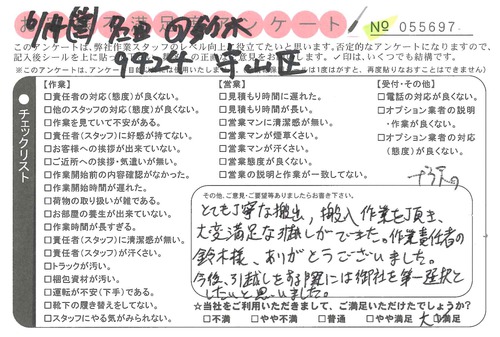 お 不満足 アンケート
№ 055697
9424 守山区
このアンケートは、弊社作業スタッフのレベル向上に役立てたいと思います。否定的なアンケートになりますので、
※このアンケートは、
チェックリスト
【作業】
□責任者の対応(態度)が良くない。
□他のスタッフの対応(態度)が良くない。
□作業を見ていて不安がある。
□責任者(スタッフ)に好感が持てない。
□お客様への挨拶が出来ていない。
□ご近所への挨拶・気遣いが無い。
□作業開始前の内容確認がなかった。
□作業開始時間が遅れた。
□荷物の取り扱いが雑である。
□お部屋の養生が出来ていない。
□作業時間が長すぎる。
□責任者(スタッフ)に清潔感が無い。
□責任者(スタッフ)が汗くさい。
□トラックが汚い。
□梱包資材が汚い。
□運転が不安(下手)である。
□靴下の履き替えをしてない。
□スタッフにやる気がみられない。
【営業】
□見積もり時間に遅れた。
□見積もり時間が長い。
□営業マンに清潔感が無い。
□営業マンが煙草くさい。
□営業マンが汗くさい。
□営業態度が良くない。
□営業の説明と作業が一致してない。
【受付・その他】
□電話の対応が良くない。
□オプション業者の説明
・作業が良くない。
□オプション業者の対応
(態度)が良くない。
その他、ご意見・ご要望等ありましたらお書き下さい。
とても丁寧な搬出，搬入作業を頂き、
大変満足な引越しができました。作業責任者の
鈴木様、ありがとうございました。
今後、引越しをする際には御社を第一選択と
したいと思いました。
☆当社をご利用いただきまして、ご満足いただけたでしょうか?
□不満 □やや不満 □普通 □やや満足 □満足